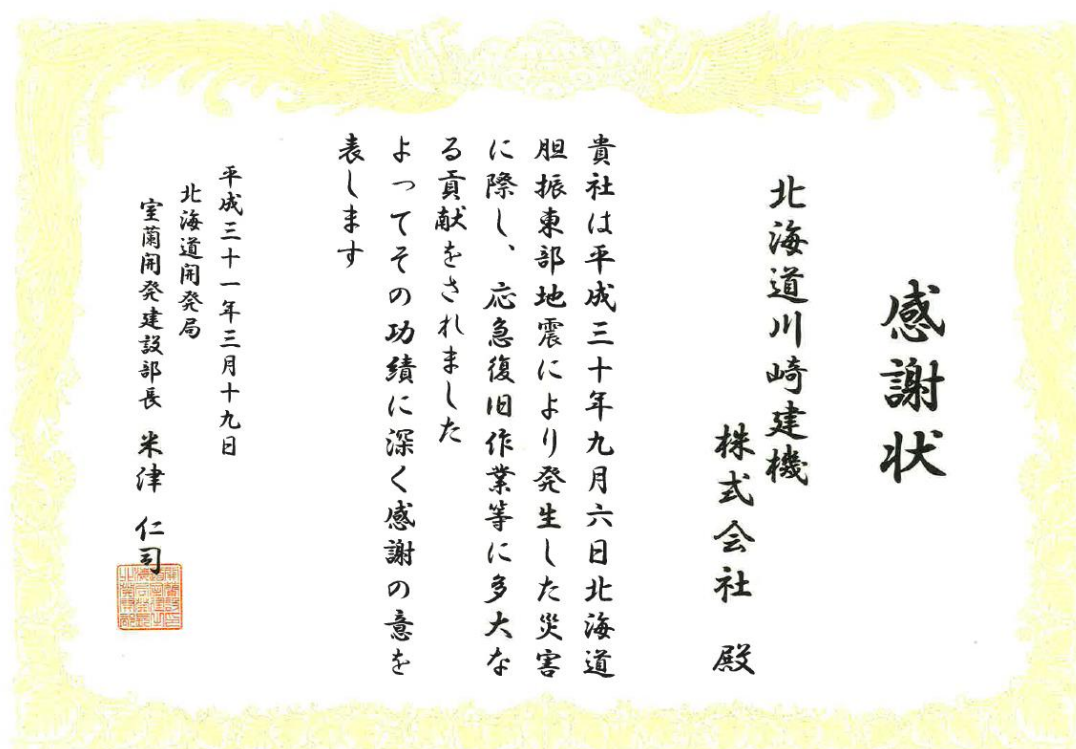 感謝状
北海道川崎建機
株式会社 殿
貴社は平成三十年九月六日北海道
胆振東部地震により発生した災害
に際し、応急復旧作業等に多大な
る貢献をされました
よってその功績に深く感謝の意を
表します
平成三十一年三月十九日
北海道開発局
室蘭開発建設部長 米津 仁司